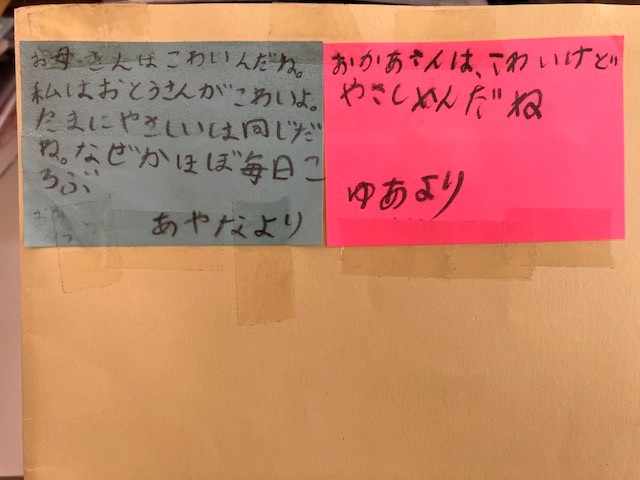 お母さんはこわいんだね。
私はおとうさんがこわいよ。
たまにやさしいは同じだ
ね。なぜかほぼ毎日こ
ろぶ
あやなより
おかあさんは、こわいけど
やさしめんだね
ゆあより